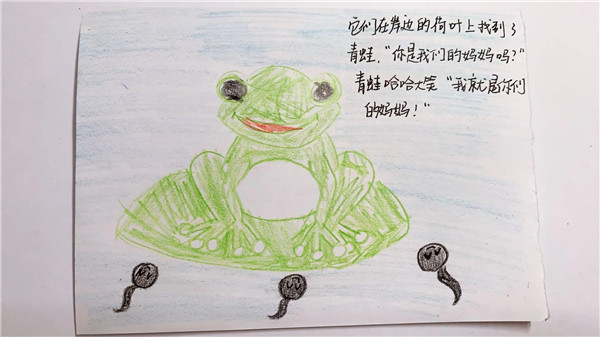 它们在岸边的荷叶上找到了
青蛙,"你是我们的妈妈吗?"
青蛙哈哈大笑"我就是你们
的妈妈!"